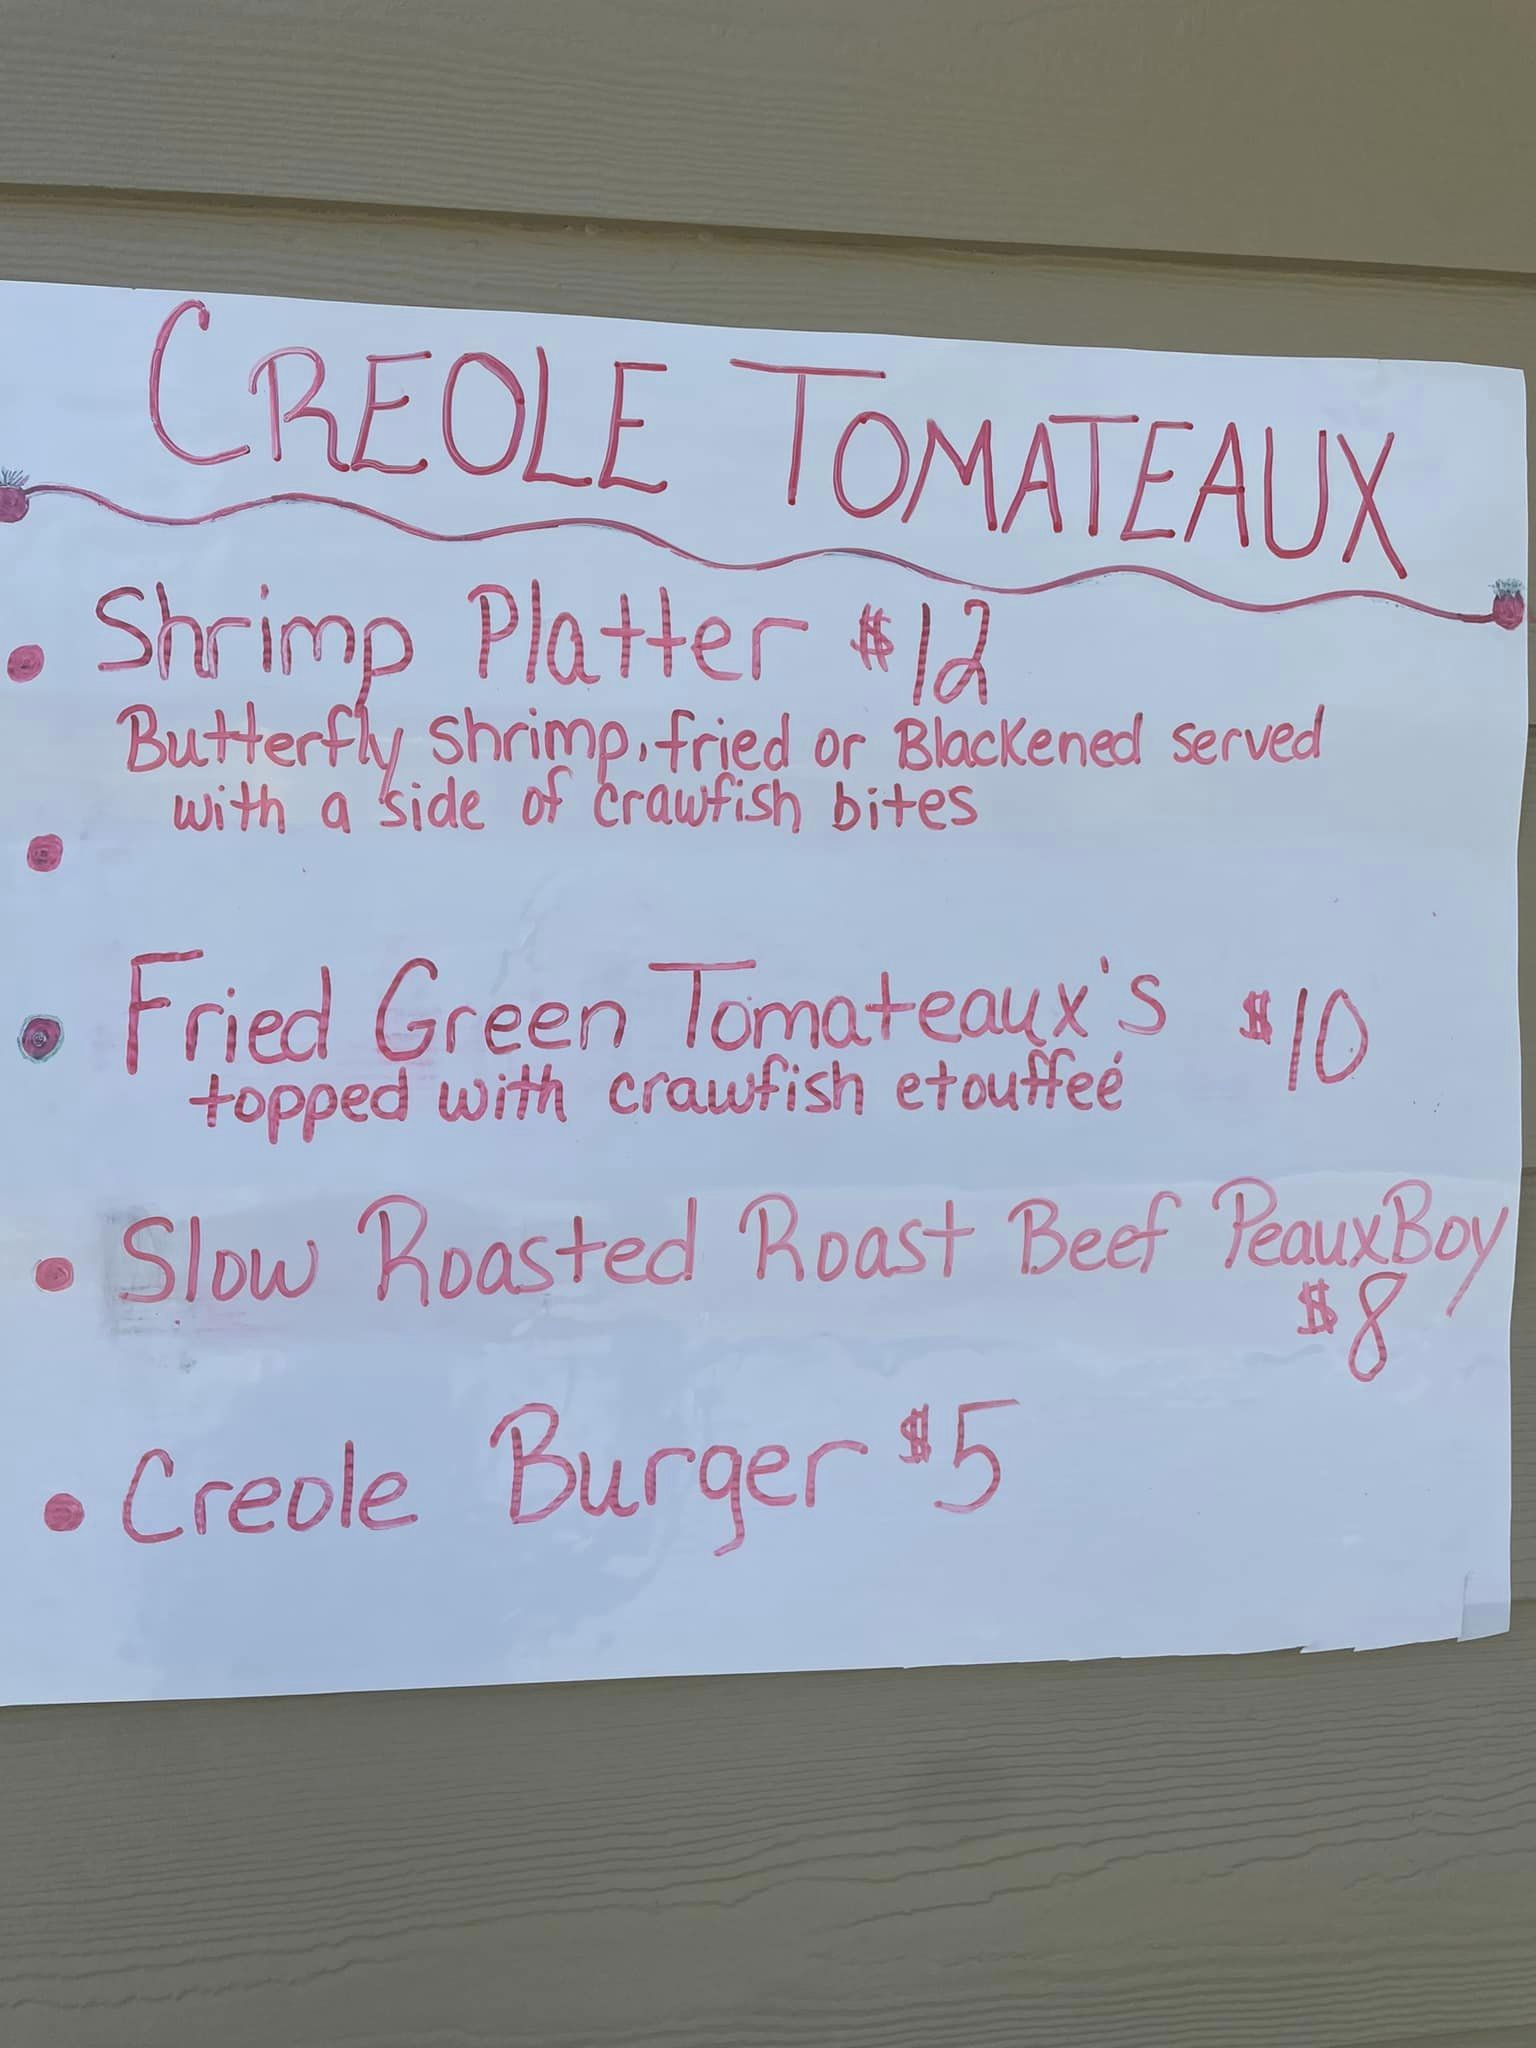 CREOLE TOMATEAUX
• Shrimp Platter $12
Butterfly shrimp, fried or Blackened served
with a side of crawfish bites
•
• Fried Green Tomateaux's $10
topped with crawfish etouffeé
• Slow Roasted Roast Beef PeauxBoy
$8
• Creole Burger $5